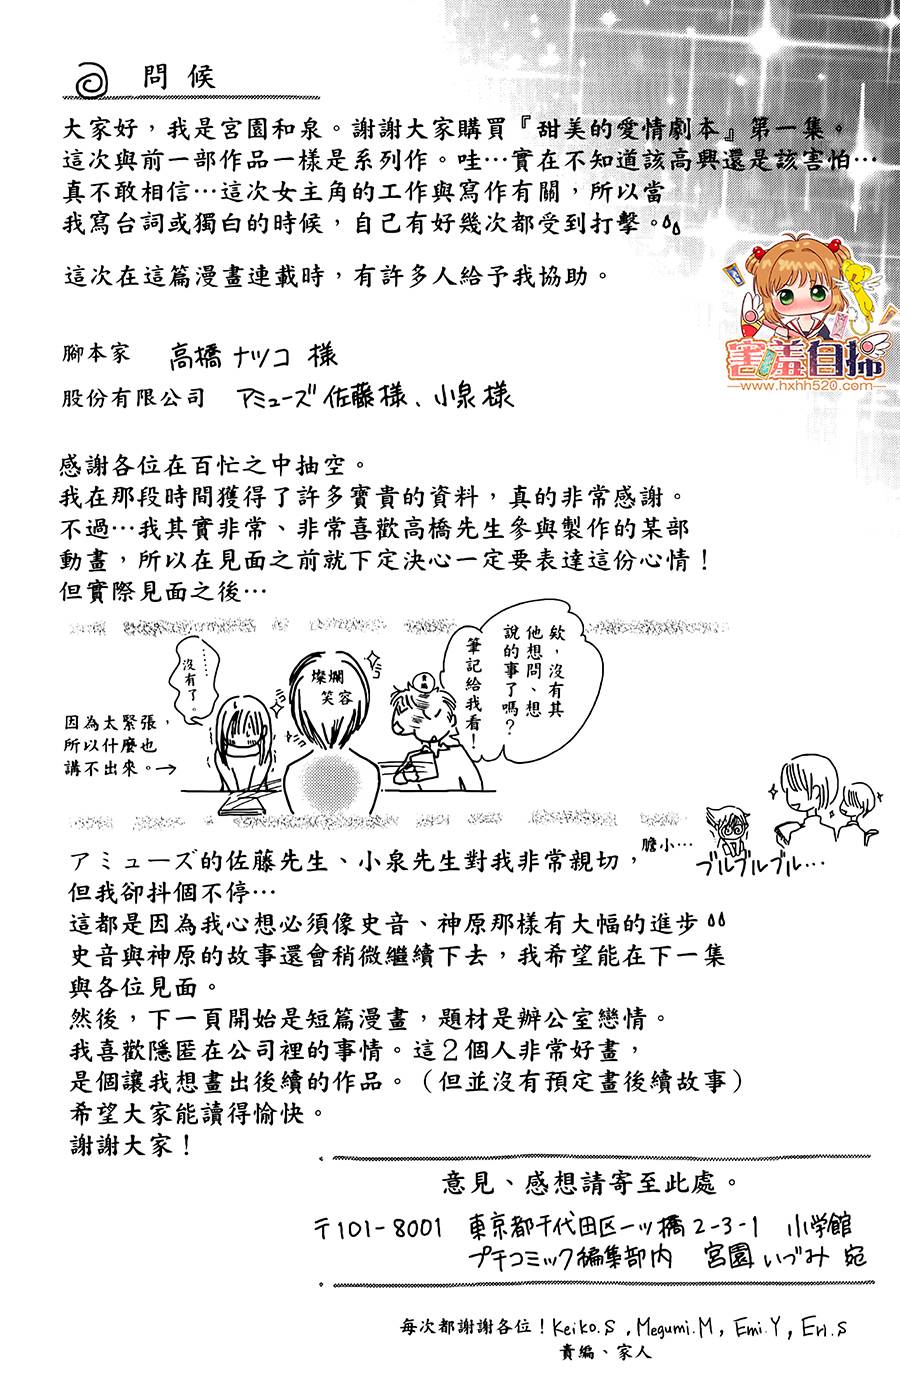 問候
大家好，我是宮園和泉。謝謝大家購買『甜美的愛情劇本』第一集。
這次與前一部作品一樣是系列作。哇…實在不知道該高興還是該害怕…
真不敢相信…這次女主角的工作與寫作有關，所以當
我寫台詞或獨白的時候，自己有好幾次都受到打擊。
這次在這篇漫畫連載時，有許多人給予我協助。
害羞自掃
www.hxhh520.com
腳本家 高橋ナツコ 様
股份有限公司 アミューズ 佐藤様、小泉様
感謝各位在百忙之中抽空。
我在那段時間獲得了許多寶貴的資料，真的非常感謝。
不過…我其實非常、非常喜歡高橋先生參與製作的某部
動畫，所以在見面之前就下定決心一定要表達這份心情！
但實際見面之後…
欸，沒有其
他想問、想
說的事了嗎？
筆記給我看！
燦爛
笑容
……
沒有了。
因為太緊張，
所以什麼也
講不出來。→
膽小…
ブルブルブル…
アミューズ的佐藤先生、小泉先生對我非常親切，
但我卻抖個不停…
這都是因為我心想必須像史音、神原那樣有大幅的進步
史音與神原的故事還會稍微繼續下去，我希望能在下一集
與各位見面。
然後，下一頁開始是短篇漫畫，題材是辦公室戀情。
我喜歡隱匿在公司裡的事情。這２個人非常好畫，
是個讓我想畫出後續的作品。（但並沒有預定畫後續故事）
希望大家能讀得愉快。
謝謝大家！
意見、感想請寄至此處。
〒101-8001 東京都千代田区一ツ橋2-3-1 小学館
プチコミック編集部内 宮園いづみ 宛
每次都謝謝各位！Keiko.S , Megumi.M , Emi.Y , Eri.S
責編、家人